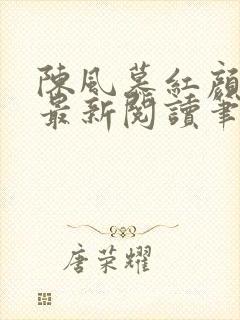 陳風慕紅顏
最新閱讀筆
唐荣耀